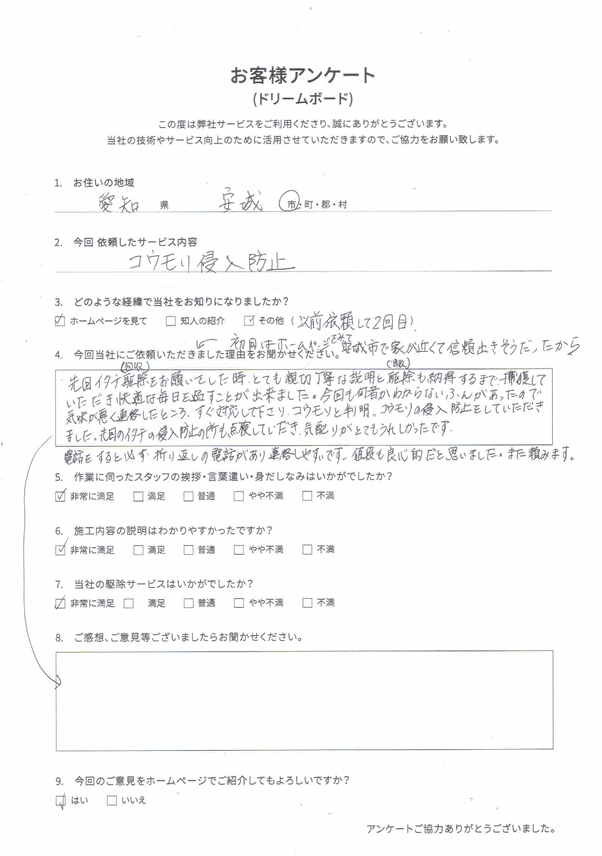 お客様アンケート
(ドリームボード)
この度は弊社サービスをご利用くださり、誠にありがとうございます。
当社の技術やサービス向上のために活用させていただきますので、ご協力をお願い致します。
1. お住いの地域
愛知 県 安城 市・町・郡・村
2. 今回 依頼したサービス内容
コウモリ侵入防止
3. どのような経緯で当社をお知りになりましたか?
☑ ホームページを見て □ 知人の紹介 ☑ その他 (以前依頼して2回目)
初回はホームページを見て安城市で家が近くて信頼出きそうだったから
4. 今回当社にご依頼いただきました理由をお聞かせください。
(回収)
先回イタチ駆除をお願いをした時、とても親切丁寧な説明と駆除も納得するまで捕獲して
いただき快適な毎日を過すことが出来ました。今回も何者かわからない、ふんがあったので
気味が悪く連絡したところ、すぐ対応して下さり、コウモリと判明。コウモリの侵入防止をしていただき
ました。先回のイタチの侵入防止の所も点検していだき、気配りがとてもうれしかったです。
電話をすると必ず折り返しの電話があり連絡しやすいです。値段も良心的だと思いました。また頼みます。
5. 作業に伺ったスタッフの挨拶・言葉遣い・身だしなみはいかがでしたか?
☑ 非常に満足 □ 満足 □ 普通 □ やや不満 □ 不満
6. 施工内容の説明はわかりやすかったですか?
☑ 非常に満足 □ 満足 □ 普通 □ やや不満 □ 不満
7. 当社の駆除サービスはいかがでしたか?
☑ 非常に満足 □ 満足 □ 普通 □ やや不満 □ 不満
8. ご感想、ご意見等ございましたらお聞かせください。
9. 今回のご意見をホームページでご紹介してもよろしいですか?
☑ はい □ いいえ
アンケートご協力ありがとうございました。